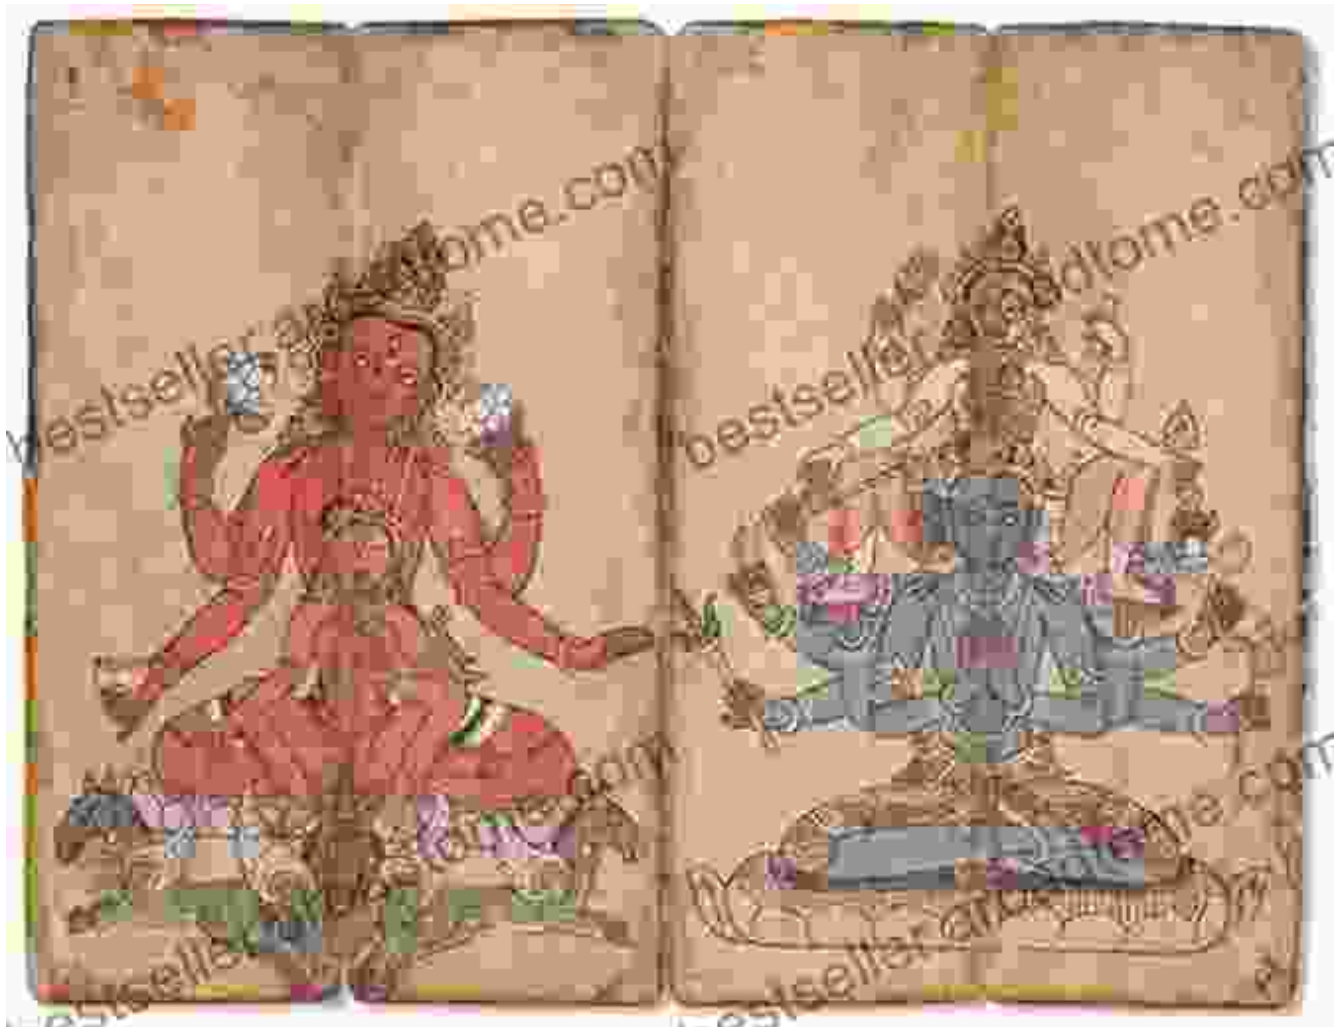 bestseller.androme.com
bestseller.androme.com
bestseller.androme.com
bestseller.androme.com